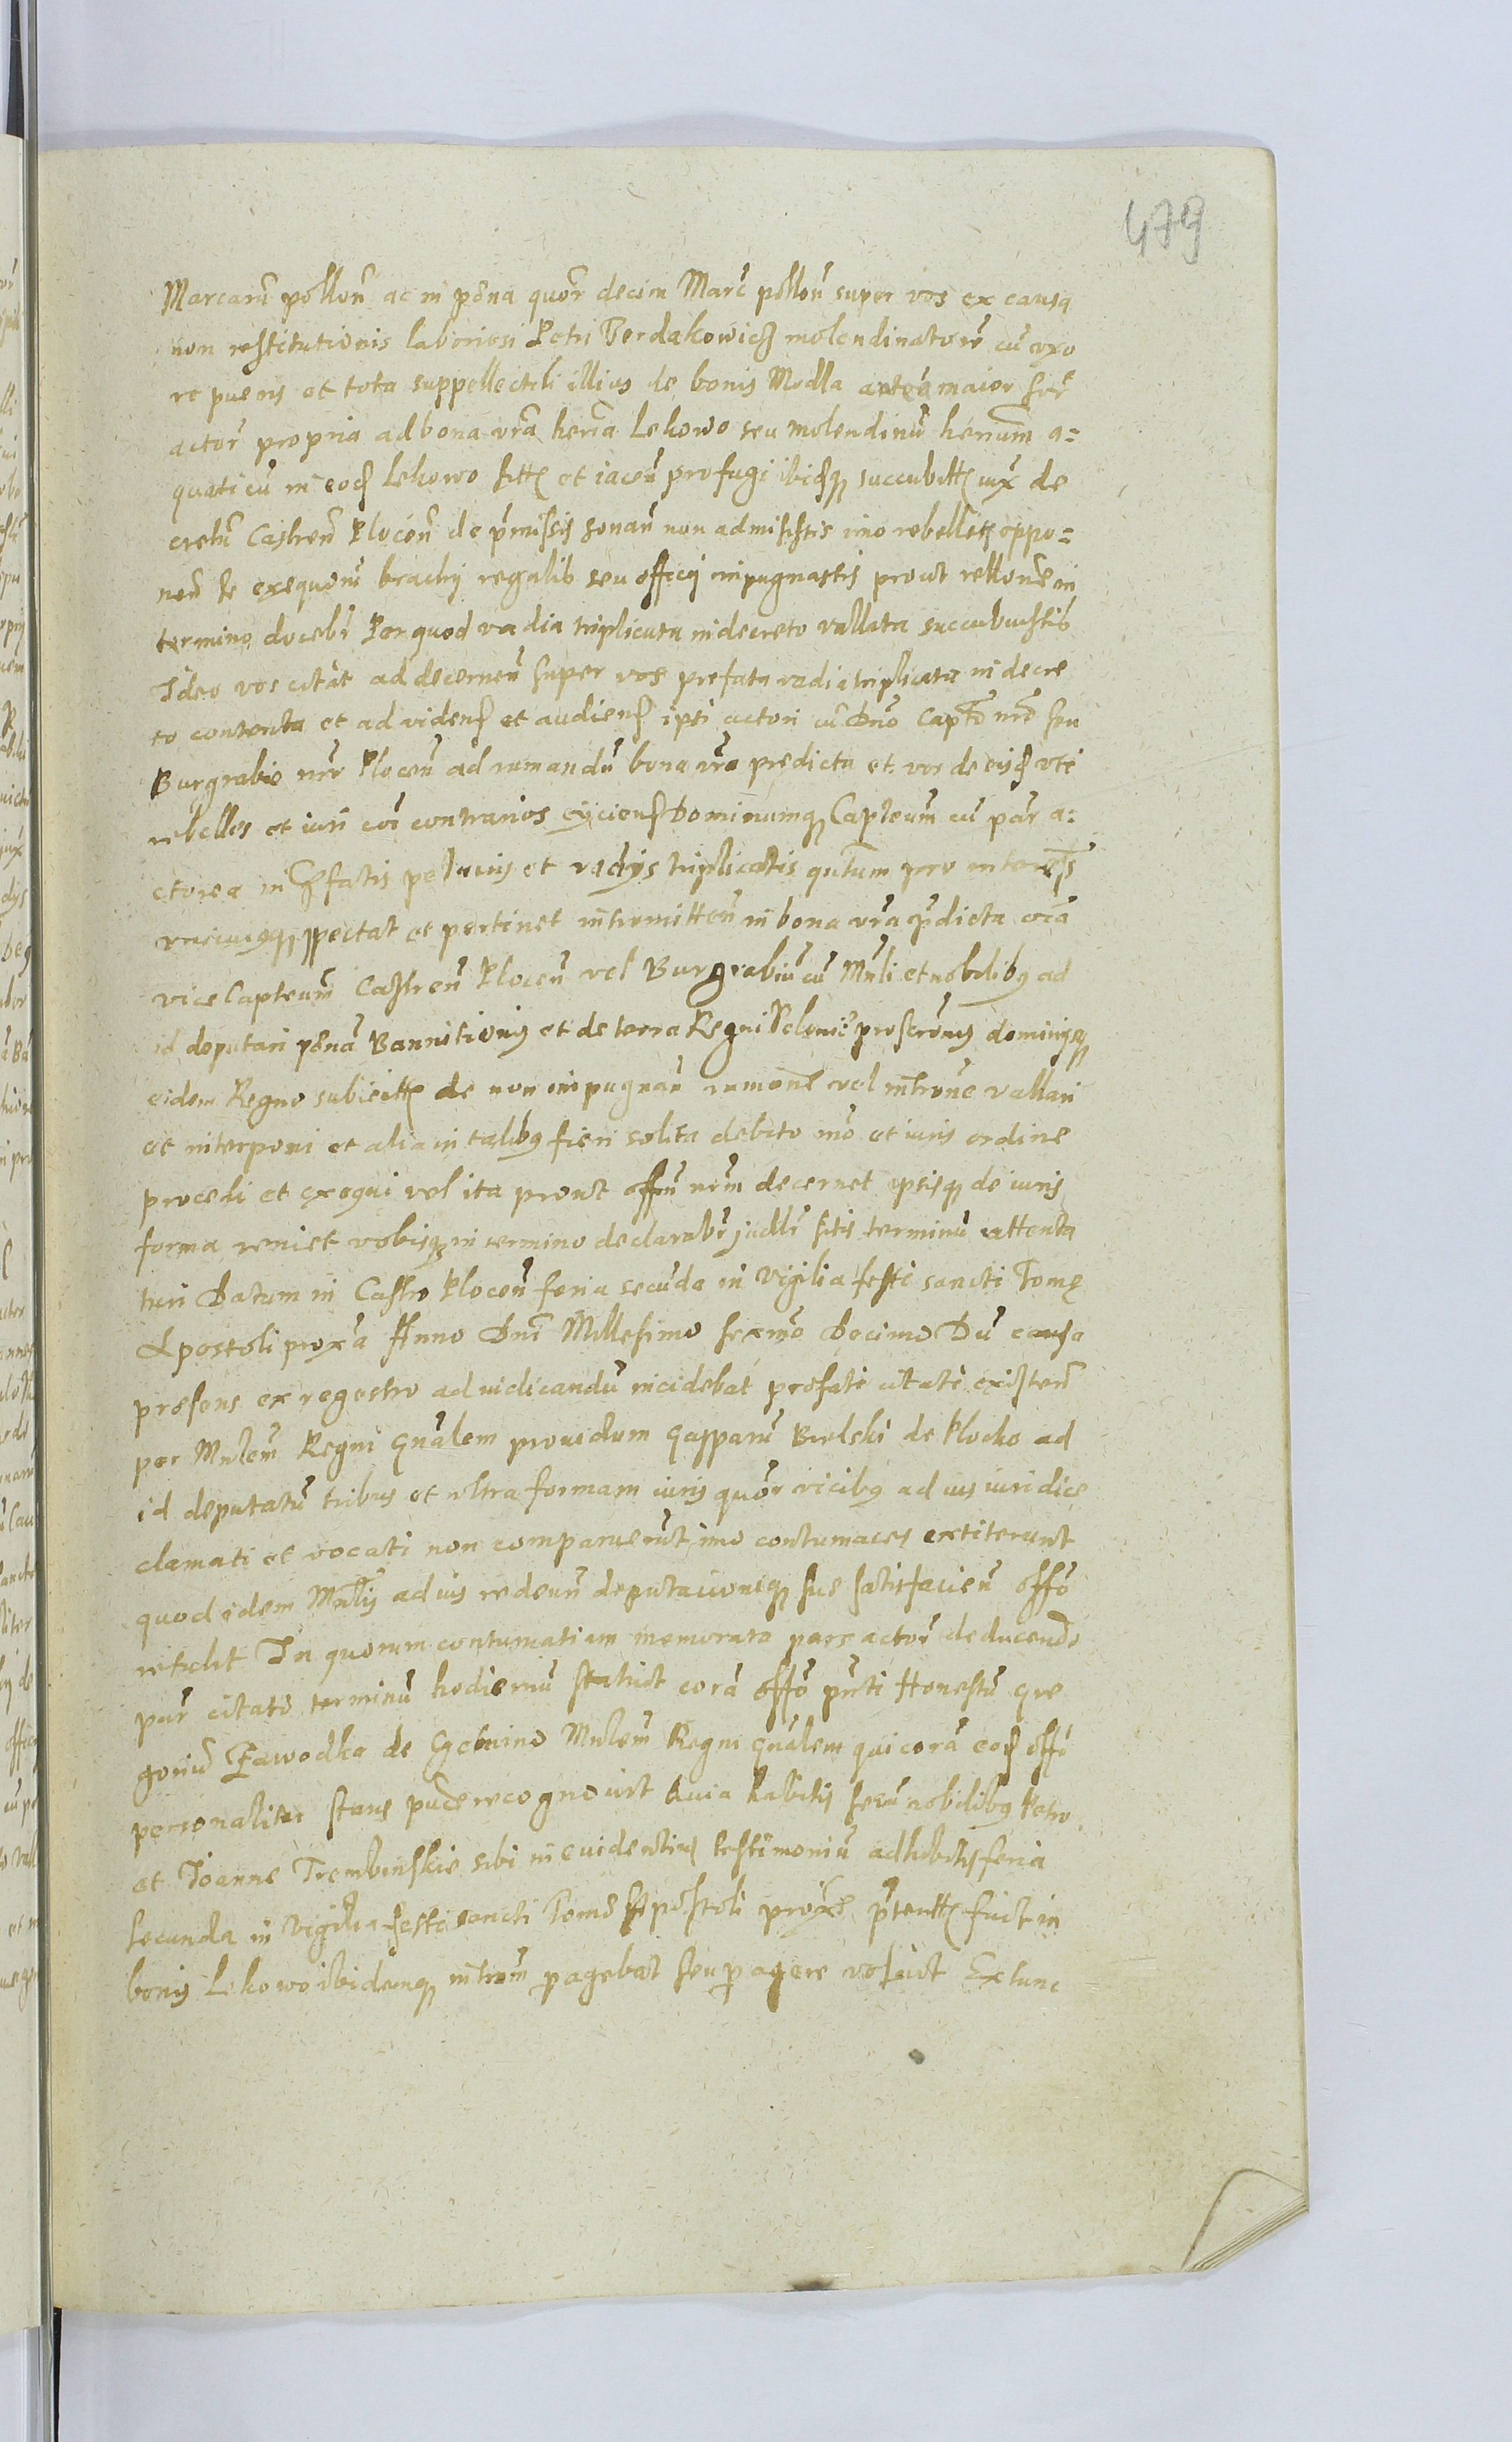 479
Marcarū pollonˉ ac in pena quor decim Marc pollonˉ super vos ex causa
non restitutionis laboriosi Petri Berdakowicz molendinatorē cū uxo
re pueris et tota suppellectili illius de bonis Modla antea maior
actor propria ad bona vra herīa Lekowo seu molendinū herium a=
quaticū in eod Lekowo sitt et iacenˉ profugi ibidq succubitt iux de
cretū Castren Plocen de pmissis sonan non admisistis imo rebellitt oppo=
nen se exequonī brachy regalib seu officy inpugnastis prout rellone in
termino docebī Per quod vadia triplicata in decreto vallata succubuistis
Ideo vos citat ad decernen super vos prefata vadia triplicata in decre
to contenta et ad vidend et audiend ipsi actori cū Dno Captō nro seu
Burgrabio nro Plocen ad rumandū bona vra predicta et vos de eisd uti
rebelles et iuri coi contrarios eyciend Dominumq Capteum cū par a=
ctorea in pfatis pecunis et vadys triplicatis qntum pro interess
unicuiq spectat et pertinet intromitten in bona vra pdicta cora
vice Capteum Castren Plocen vel Burgrabiū cū Mnli et nobilibq ad
id deputari pena Bannitionis et de terra Regni Polonie proscronis dominysq
eidem Regno subiectt de non inpugnan rumone vel introne vallari
et interponi et alia in talibq fieri solita debito mo et iuris ordine
procedi et exequi vel ita prout offm nrm decernet ipsisq de iuris
forma veniet vobisq in termino declarabī judlr sitis terminū attenta
turi Datum in Castro Plocen feria secuda in Vigilia festi sancti Tomę
Apostoli proxa Anno Dni Millesimo sexmo Decimo Dū causa
præsens ex regestro ad iudicandū incidebat prefati citati existen
per Mnlem Regni Gnalem providum Gasparū Bielski de Plocko ad
id deputatū tribus et ultra formam iuris quor vicibq ad ius iuridice
clamati et vocati non comparuerūt imo contumaces extiterunt
quod idem Mnlis ad ius redeun deputacioniq sue satisfacien offo
retulit In quorum contumatiam memorata pars actor deducendo
par citate terminū hodiernū statuit cora offo pnti Honestū Gre
goriū Zawodka de Mnlem Regni Gnalem qui cora eod offo
personaliter stans puce recognovit quia habitis secū nobilibq Petro
et Joanne Trembinskie sibi in euidentius testimoniū adhibitis feria
secunda in Vigilia festi sancti Tome Apostoli proxe ptentt fuit in
bonis Lekowo ibidemq introm pagebat seu pagere voluit Ex tunc